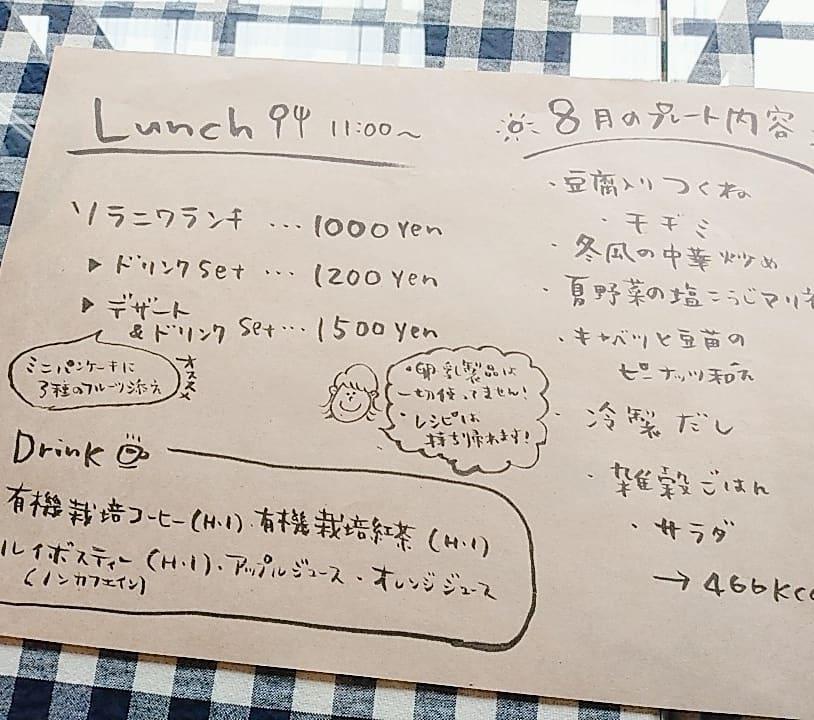 Lunch 11:00〜
ソラニワランチ … 1000 yen
▶ ドリンク set … 1200 yen
▶ デザート
& ドリンク set … 1500 yen
ミニパンケーキに
3種のフルーツ添え
オススメ
・卵 乳製品は
一切使ってません!
・レシピは
持ち帰れます!
Drink
有機栽培コーヒー(H・I)・有機栽培紅茶(H・I)
ルイボスティー(H・I)・アップルジュース・オレンジジュース
(ノンカフェイン)
8月のプレート内容
・豆腐入りつくね
・チヂミ
・冬瓜の中華炒め
・夏野菜の塩こうじマリネ
・キャベツと豆苗の
ピーナッツ和え
・冷製だし
・雑穀ごはん
・サラダ
→ 466kc